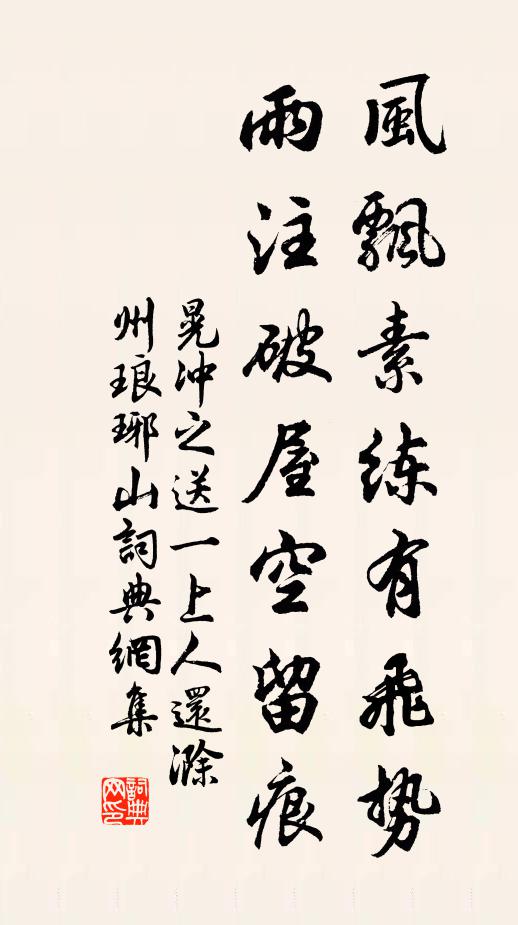 風飄素练有飛势
雨注破屋空留痕
晁沖之送一上人還滁
州琅琊山詞典網集
詞典网印